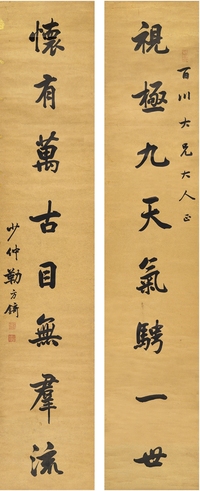 百川大兄大人正
視極九天氣騁一世
懷有萬古目無羣流
少仲勒方錡